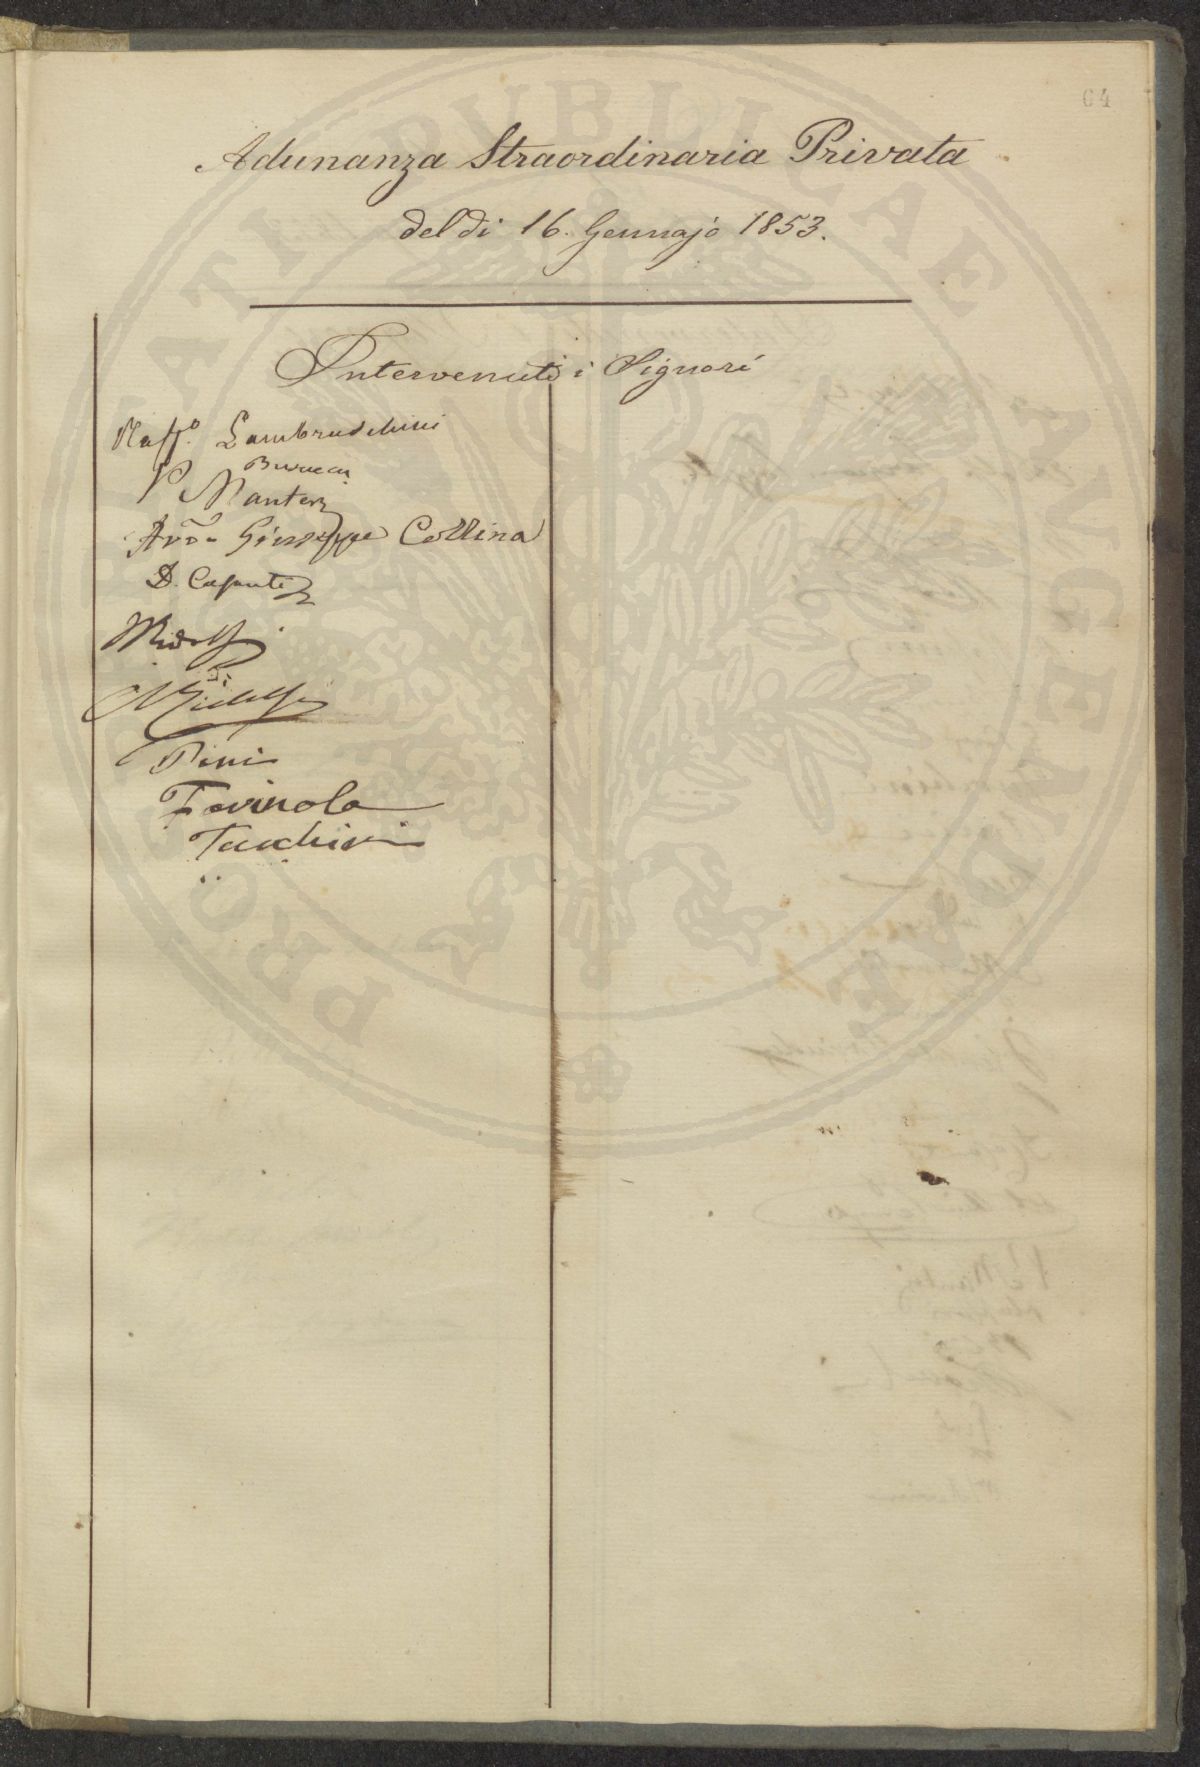 64
Adunanza Straordinaria Privata
del dì 16. Gennajo 1853.
Intervenuti i Signori
Raff.o Lambruschini
P Manteri
Avv.o Giuseppe Collina
D. Capanti
Ridolfi
Ridolfi
Pini
Farinola
Tacchini
PROSPERITATI PUBLICAE AUGENDAE